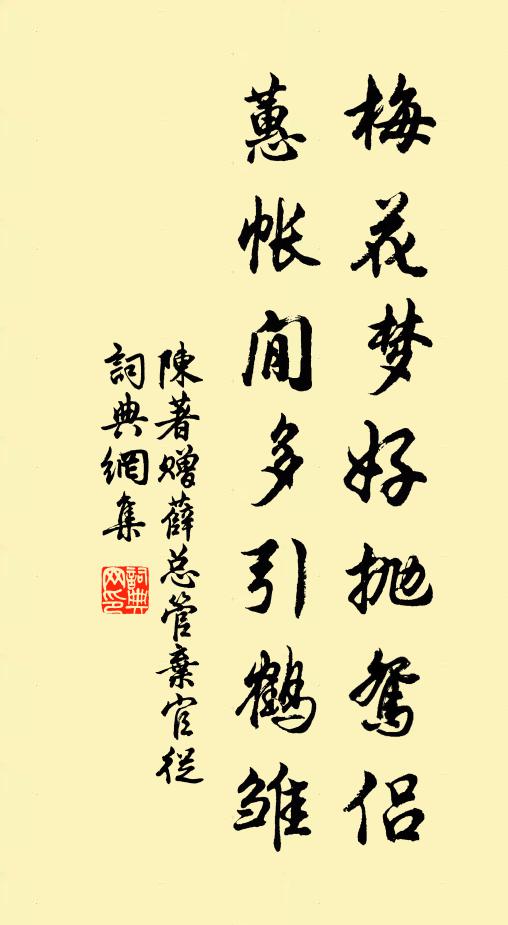 梅花梦好抛鸳侣
蕙帐闲多引鹤雏
陳著赠薛总管棄官從
詞典網集
詞典网印